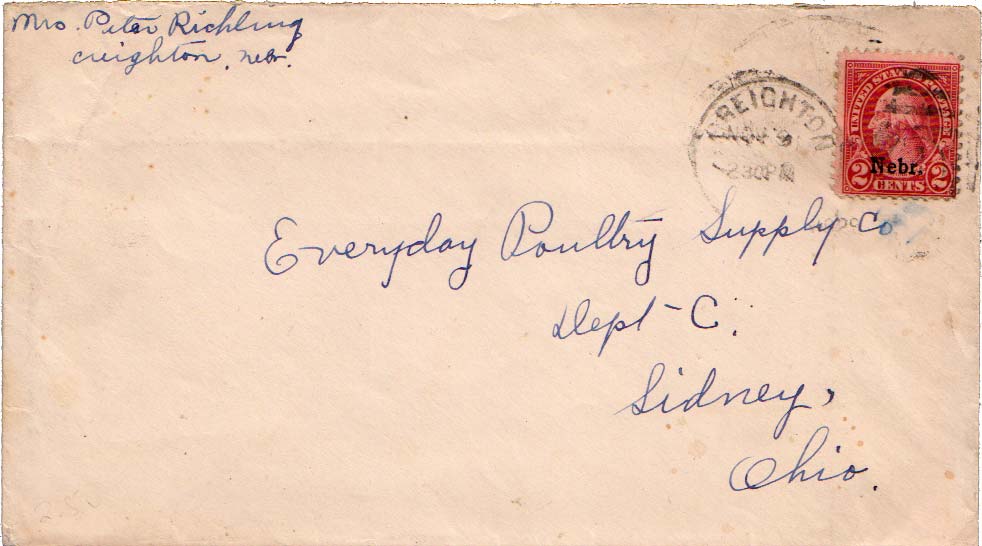 Mrs. Peter Richling
Creighton, Nebr.
CREIGHTON
NOV 9
230PM
UNITED STATES POSTAGE
Nebr.
2 CENTS 2
Everyday Poultry Supply Co
Dept-C.
Sidney,
Ohio.